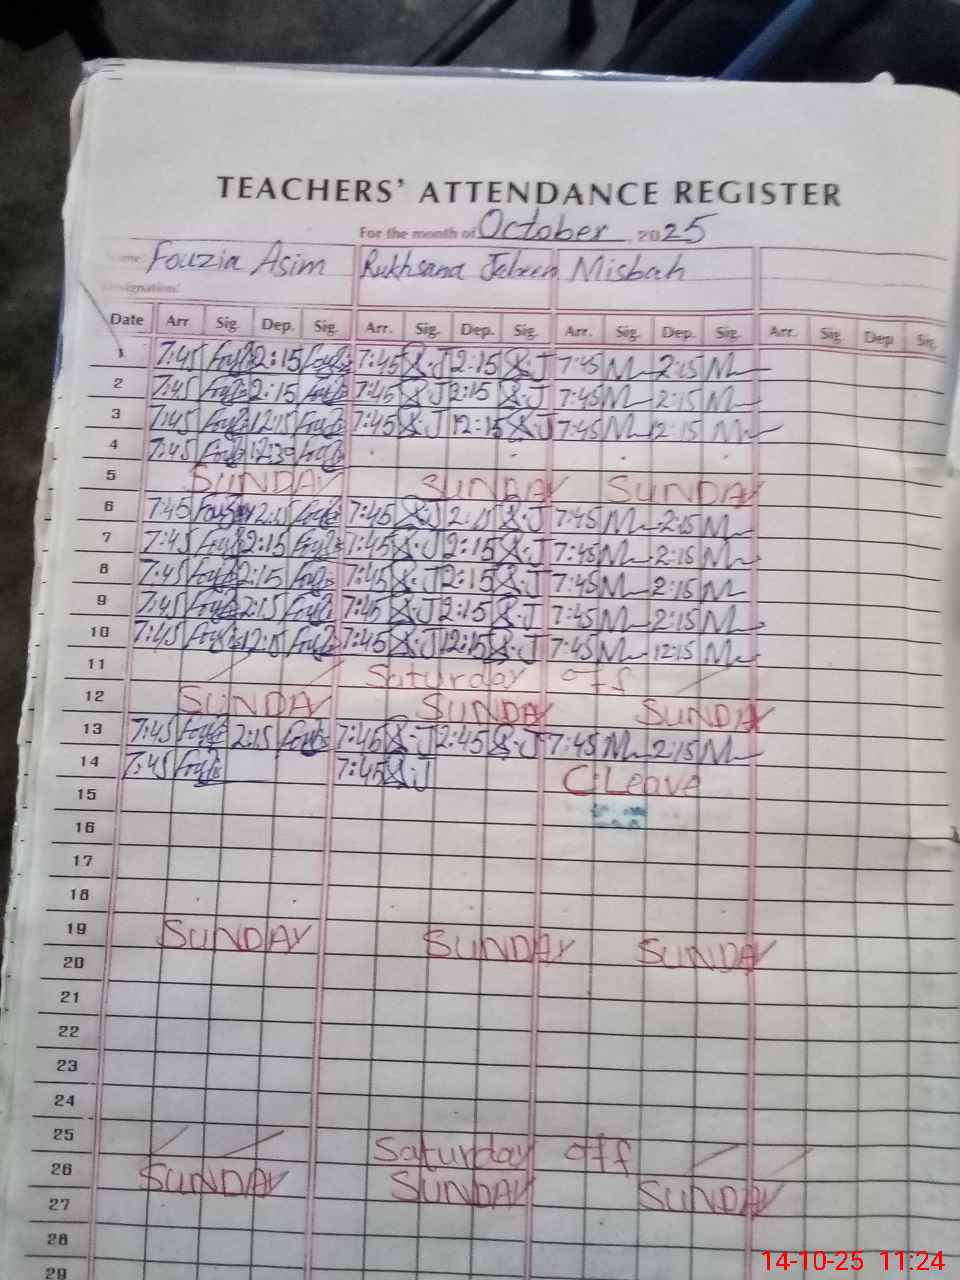 TEACHERS' ATTENDANCE REGISTER
For the month of October, 2025
Name: Fouzia Asim Rukhsana Jabeen Misbah
Designation:
Date Arr. Sig. Dep. Sig. Arr. Sig. Dep. Sig. Arr. Sig. Dep. Sig. Arr. Sig. Dep Sig.
1 7:45 2:15 7:45 R.J 2:15 R.J 7:45 M 2:15 M
2 7:45 2:15 7:45 R.J 2:15 R.J 7:45 M 2:15 M
3 7:45 12:15 7:45 R.J 12:15 R.J 7:45 M 12:15 M
4 7:45 12:30
5 SUNDAY SUNDAY SUNDAY
6 7:45 2:15 7:45 R.J 2:15 R.J 7:45 M 2:15 M
7 7:45 2:15 7:45 R.J 2:15 R.J 7:45 M 2:15 M
8 7:45 2:15 7:45 R.J 2:15 R.J 7:45 M 2:15 M
9 7:45 2:15 7:45 R.J 2:15 R.J 7:45 M 2:15 M
10 7:45 12:15 7:45 R.J 12:15 R.J 7:45 M 12:15 M
11 Saturday off
12 SUNDAY SUNDAY SUNDAY
13 7:45 2:15 7:45 R.J 2:45 R.J 7:45 M 2:15 M
14 7:45 7:45 R.J C.Leave
15
16
17
18
19 SUNDAY SUNDAY SUNDAY
20
21
22
23
24
25 Saturday off
26 SUNDAY SUNDAY SUNDAY
27
28
29
14-10-25 11:24